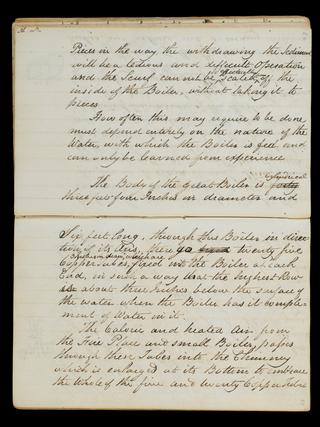 Pieces in the way, the withdrawing the Sediment
will be a tedious and difficult Operation
and the Scurf cannot be effectually scaled off the
inside of the Boiler, without taking it to
pieces
How often this may require to be done
must depend entirely on the nature of the
Water, with which the Boiler is feed and
can only be learned from experience
The Body of the great Boiler is Cylindrical
three feet four Inches in diameter and
Six feet long, through this Boiler in direc
tion of its Axis, there go twenty five
Copper tubes, fixed into the Boiler at each
End, in such a way that the highest Row
is about three Inches below the surface of
the water when the Boiler has it comple
ment of Water in it.
The Caloric and heated Air from
the Fire Place and small Boiler, passes
through these Tubes into the Chimney
which is enlarged at its Bottom to embrace
the whole of the five and twenty Copper tubes